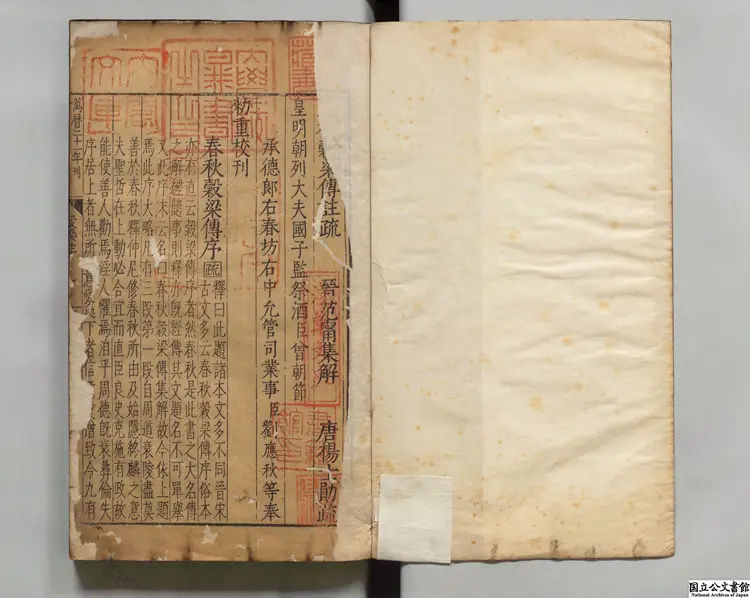 穀梁傳註疏 晉范甯集解 唐楊士勛疏
皇明朝列大夫國子監祭酒臣曾朝節
承德郎右春坊右中允管司業事臣劉應秋等奉
勑重校刊
春秋穀梁傳序 疏 釋曰此題諸本文多不同晉宋
古文多云春秋穀梁傳序俗本
亦有直云穀梁傳序者然春秋是此書之大名傳
之解經隨事則釋亦既經傳其文題名不可單舉
又此序末云名曰春秋穀梁傳集解故今依上題
焉此序大略凡有三段第一段自周道衰陵盡莫
善於春秋釋仲尼修春秋所由及始隱終麟之意
夫聖哲在上動必合宜而直臣良史克施有政故
能使善人勸焉淫人懼焉洎乎周德既衰彝倫失
序居上者無所 下者信 憎致令九有
萬曆二十一年刊
国立公文書館
National Archives of Japan